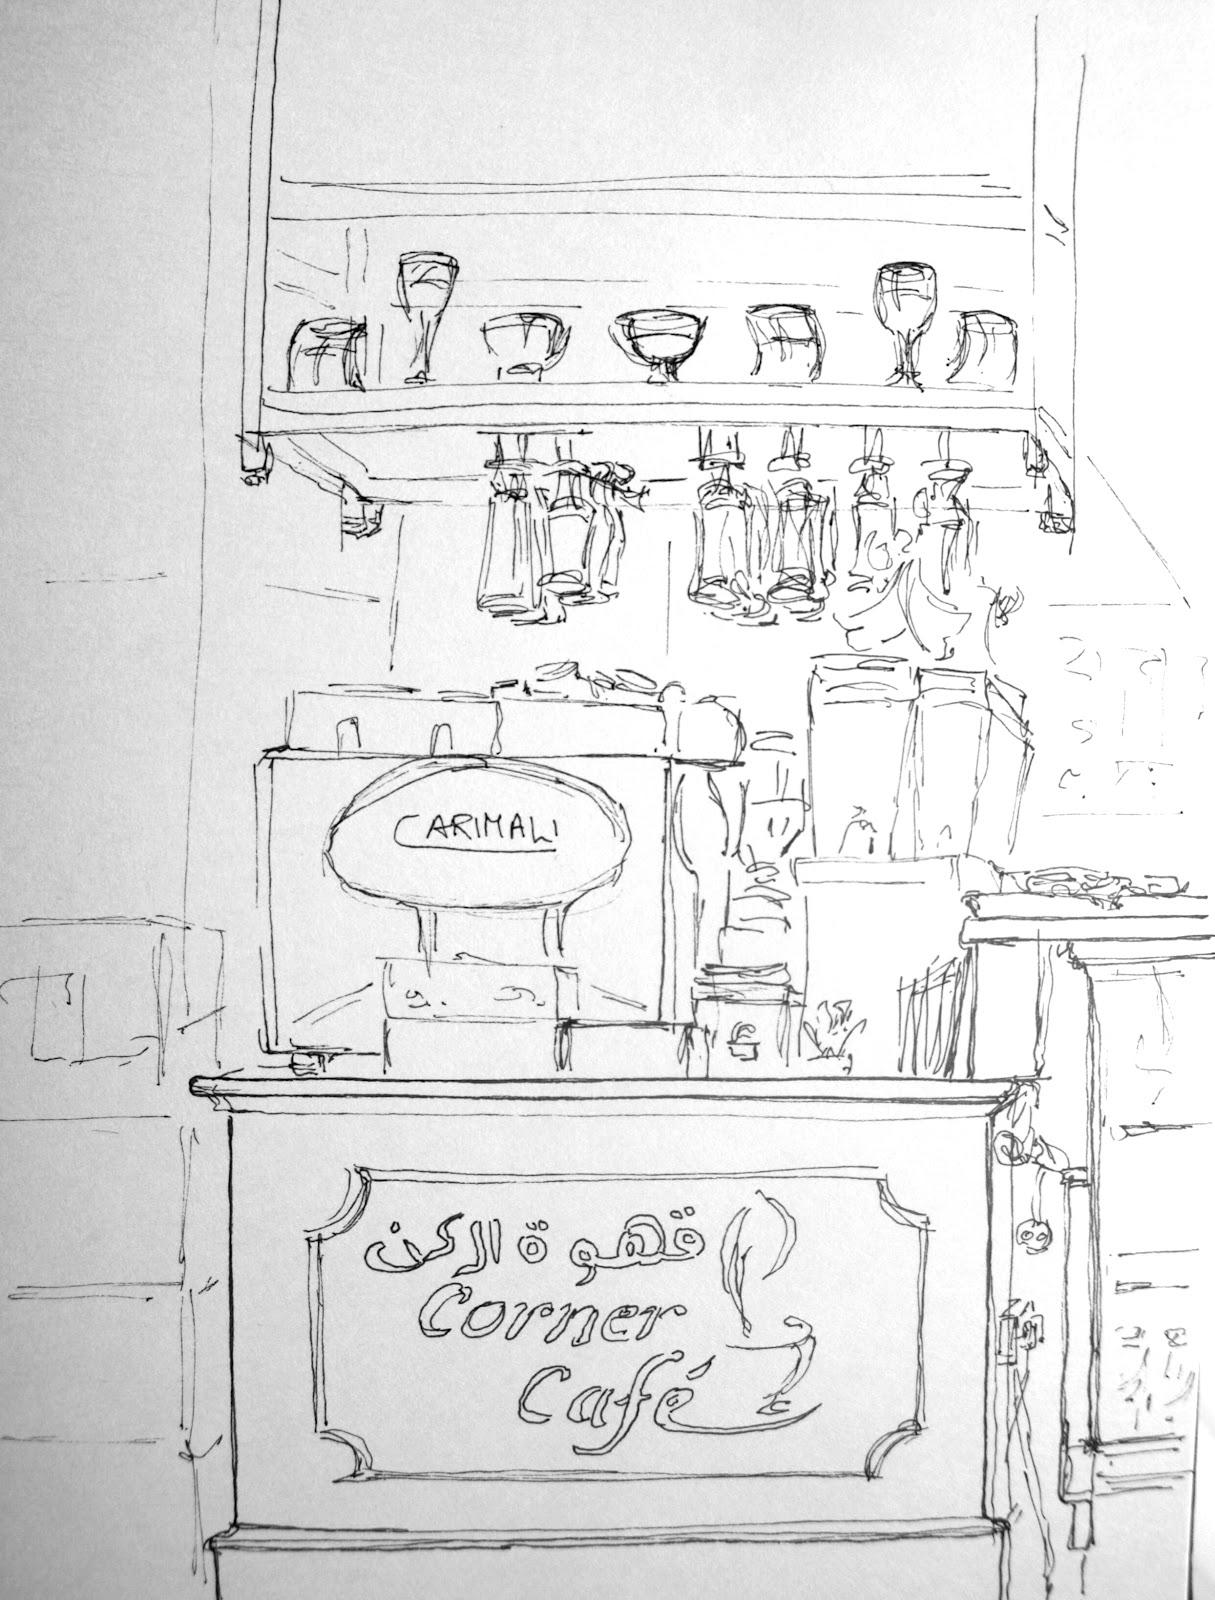 CARIMALI
قهوة الركن
Corner
Café